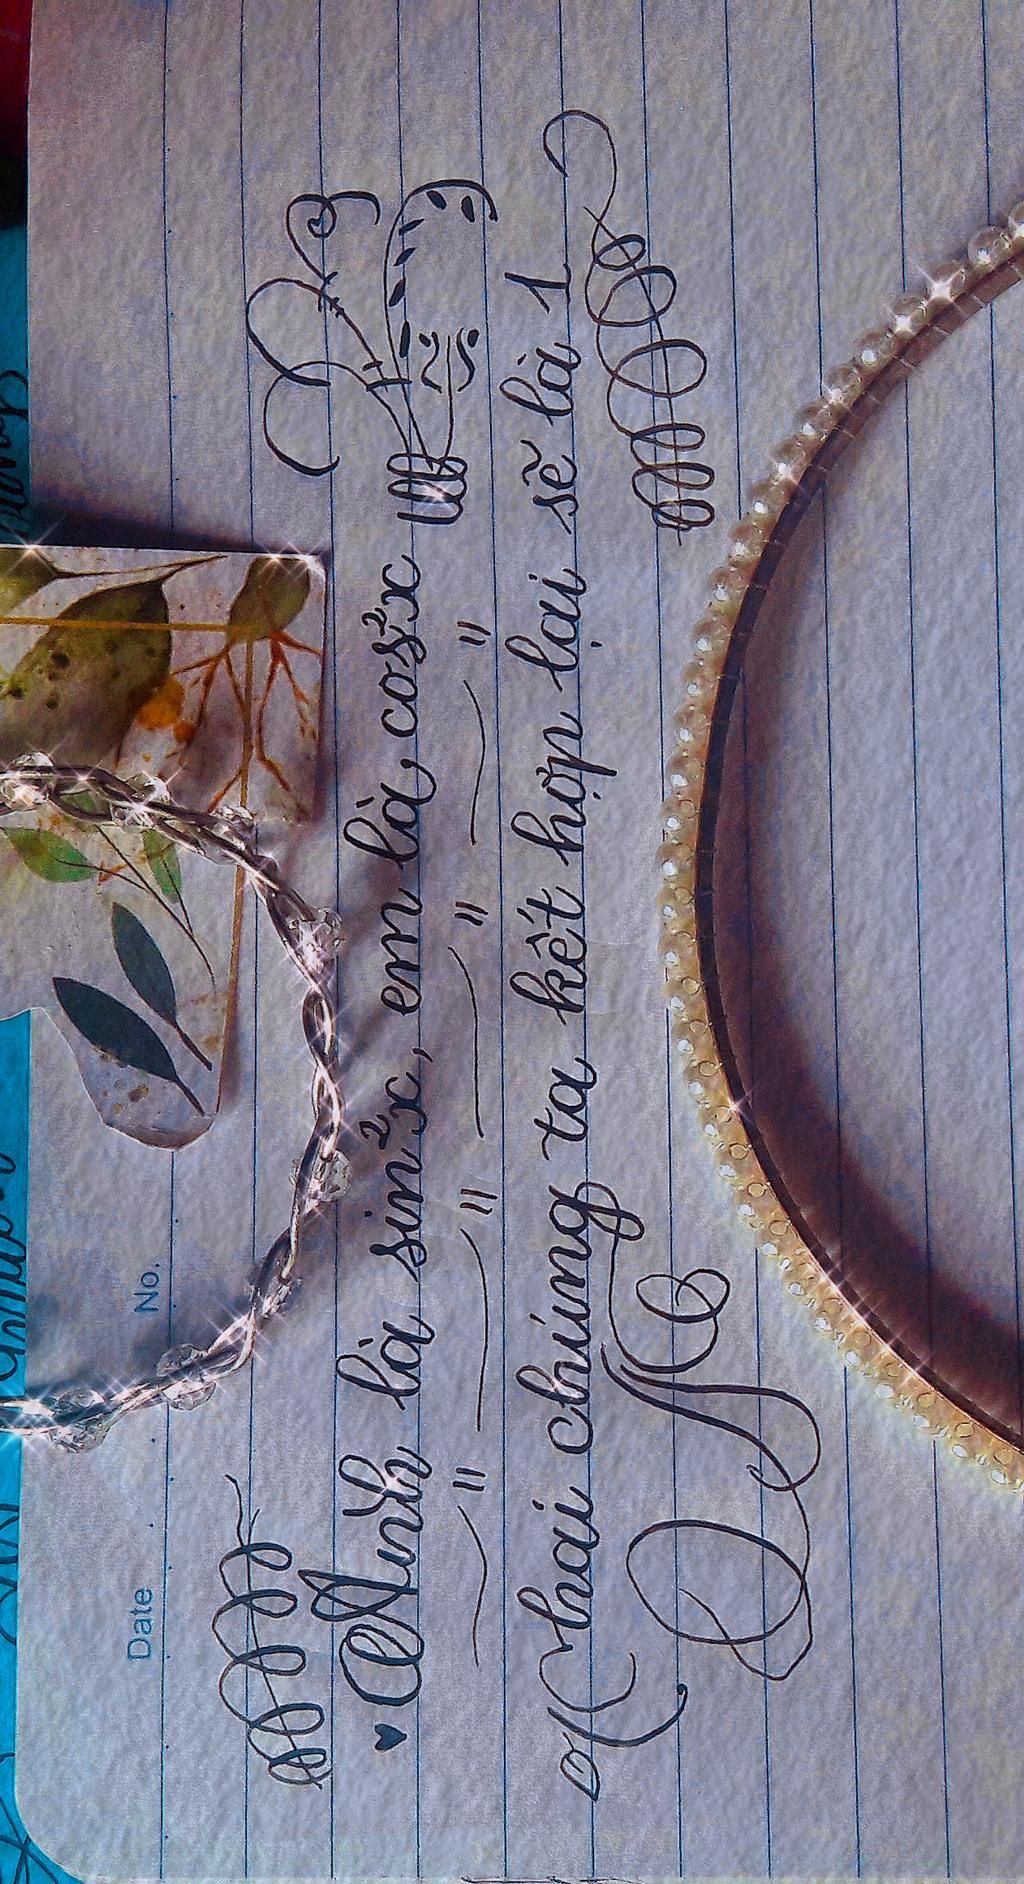 Date No.
Anh là sin²x, em là cos²x
Khai chúng ta kết hợp lại sẽ là 1